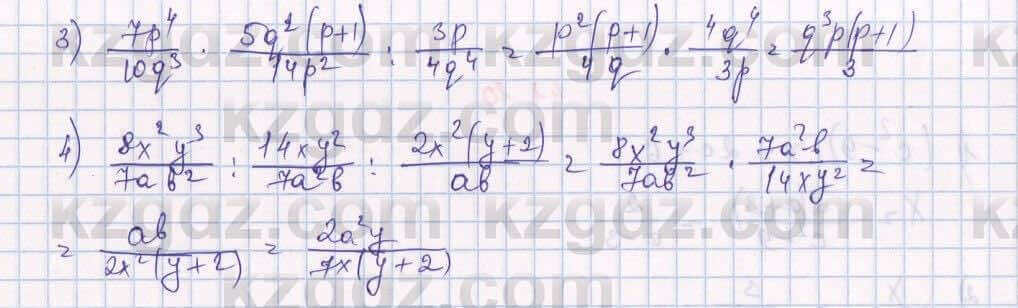 3) 7p⁴/10q³ · 5q²(p+1)/14p² : 3p/4q⁴ = p²(p+1)/4q · 4q⁴/3p = q³p(p+1)/3
4) 8x²y³/7ab² : 14xy²/7a²b : 2x²(y+2)/ab = 8x²y³/7ab² · 7a²b/14xy² =
= ab/2x²(y+2) = 2a²y/7x(y+2)
kzgdz.com